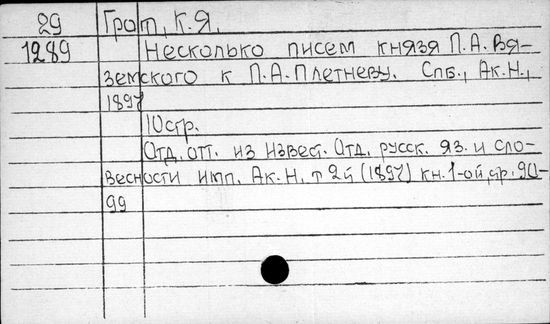 29 Грот, К.Я.
1289 Несколько писем князя П.А. Вя-
земского к П.А. Плетневу. Спб., Ак.Н.,
1897
10стр.
Отд. отт. из Извест. Отд. русск. яз. и сло-
весности имп. Ак.Н. т 2й (1897) кн. 1-ой, стр. 90-
99